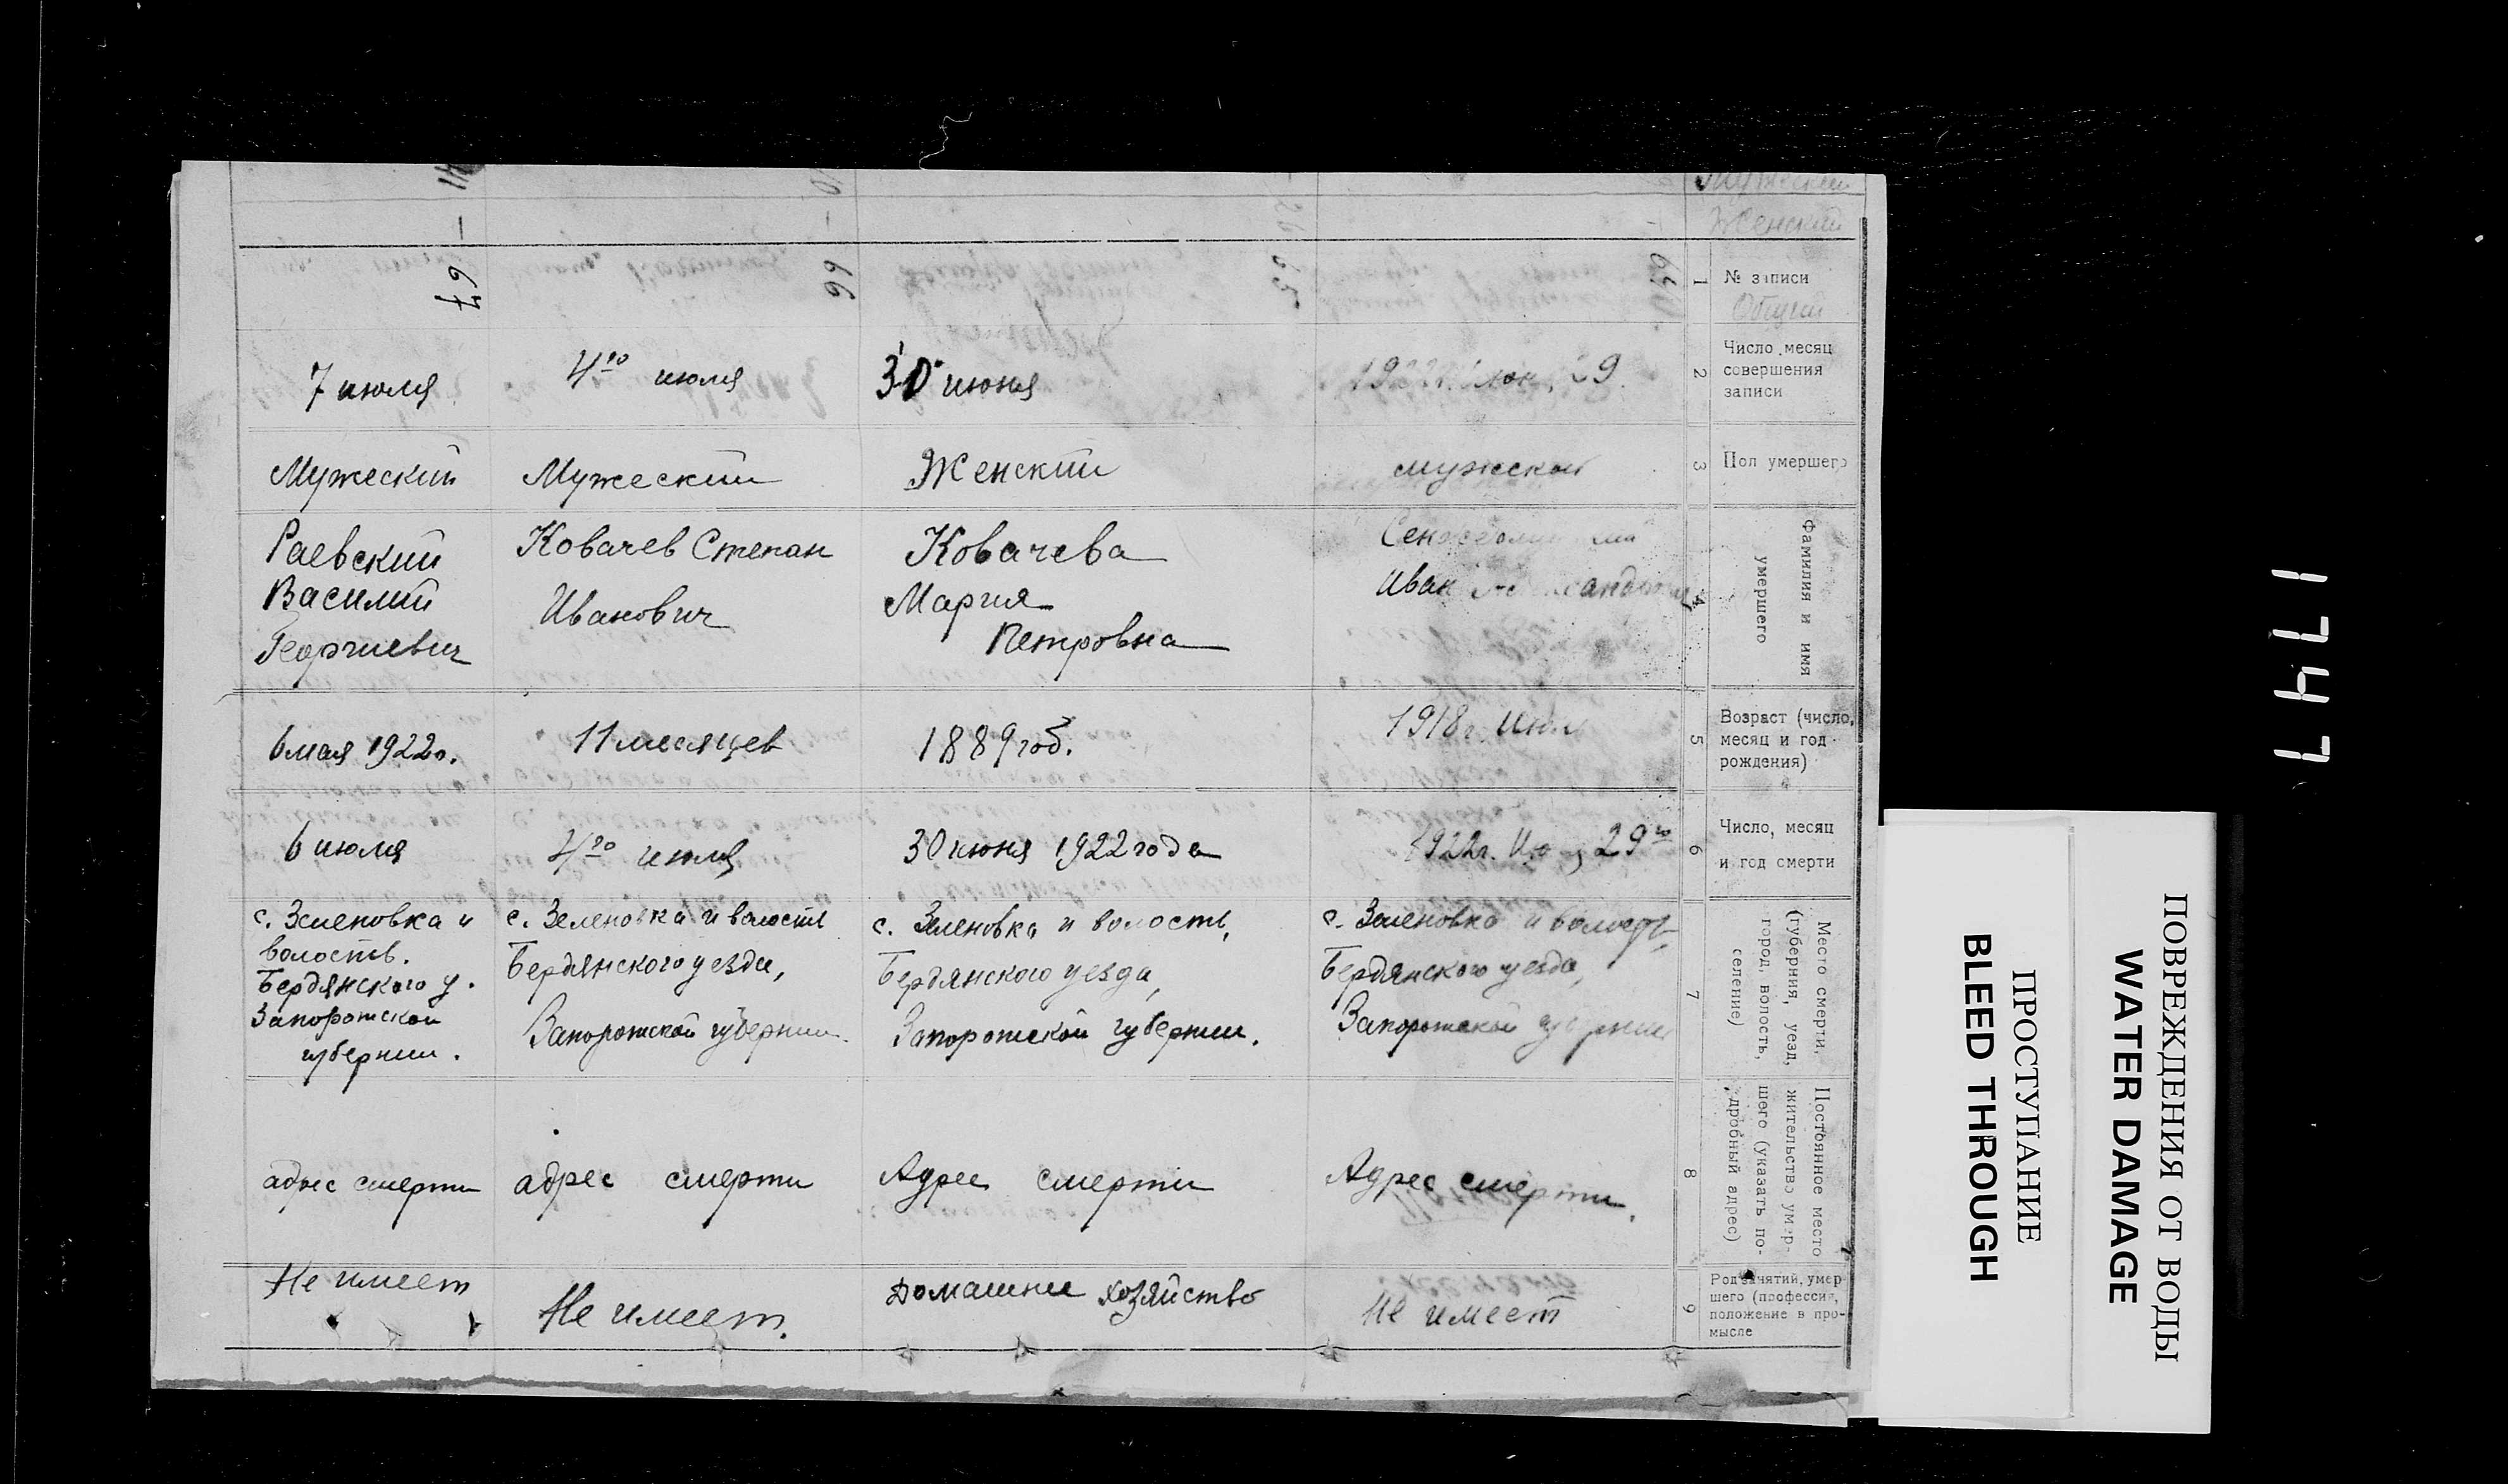 Мужеский
Женский
1
№ записи
Общий
67 —
66 —
65
2
Число, месяц
совершения
записи
7 июля
4го июля
30 июня
29.
3
Пол умершего
Мужеский
Мужеский
Женский
мужской
4
Фамилия и имя
умершего
Раевский
Василий
Георгиевич
Ковачев Степан
Иванович
Ковачева
Мария
Петровна
Иван
5
Возраст (число,
месяц и год
рождения)
6 мая 1922г.
11 месяцев
1889 год.
1918г.
6
Число, месяц
и год смерти
6 июля
4го июля
30 июня 1922 года
1922г. 29го
7
Место смерти,
(губерния, уезд,
город, волость,
селение)
с. Зеленовка и
волость.
Бердянского у.
Запорожской
губернии.
с. Зеленовка и волость
Бердянского уезда,
Запорожской губернии.
с. Зеленовка и волость,
Бердянского уезда,
Запорожской губернии.
с. Зеленовка и волость,
Бердянского уезда,
Запорожской губернии
8
Постоянное место
жительство умер-
шего (указать по-
дробный адрес)
адрес смерти
адрес смерти
Адрес смерти
Адрес смерти.
9
Род занятий, умер-
шего (профессия,
положение в про-
мысле
Не имеет
Не имеет.
Домашнее хозяйство
Не имеет
1747
ПОВРЕЖДЕНИЯ ОТ ВОДЫ
WATER DAMAGE
ПРОСТУПАНИЕ
BLEED THROUGH